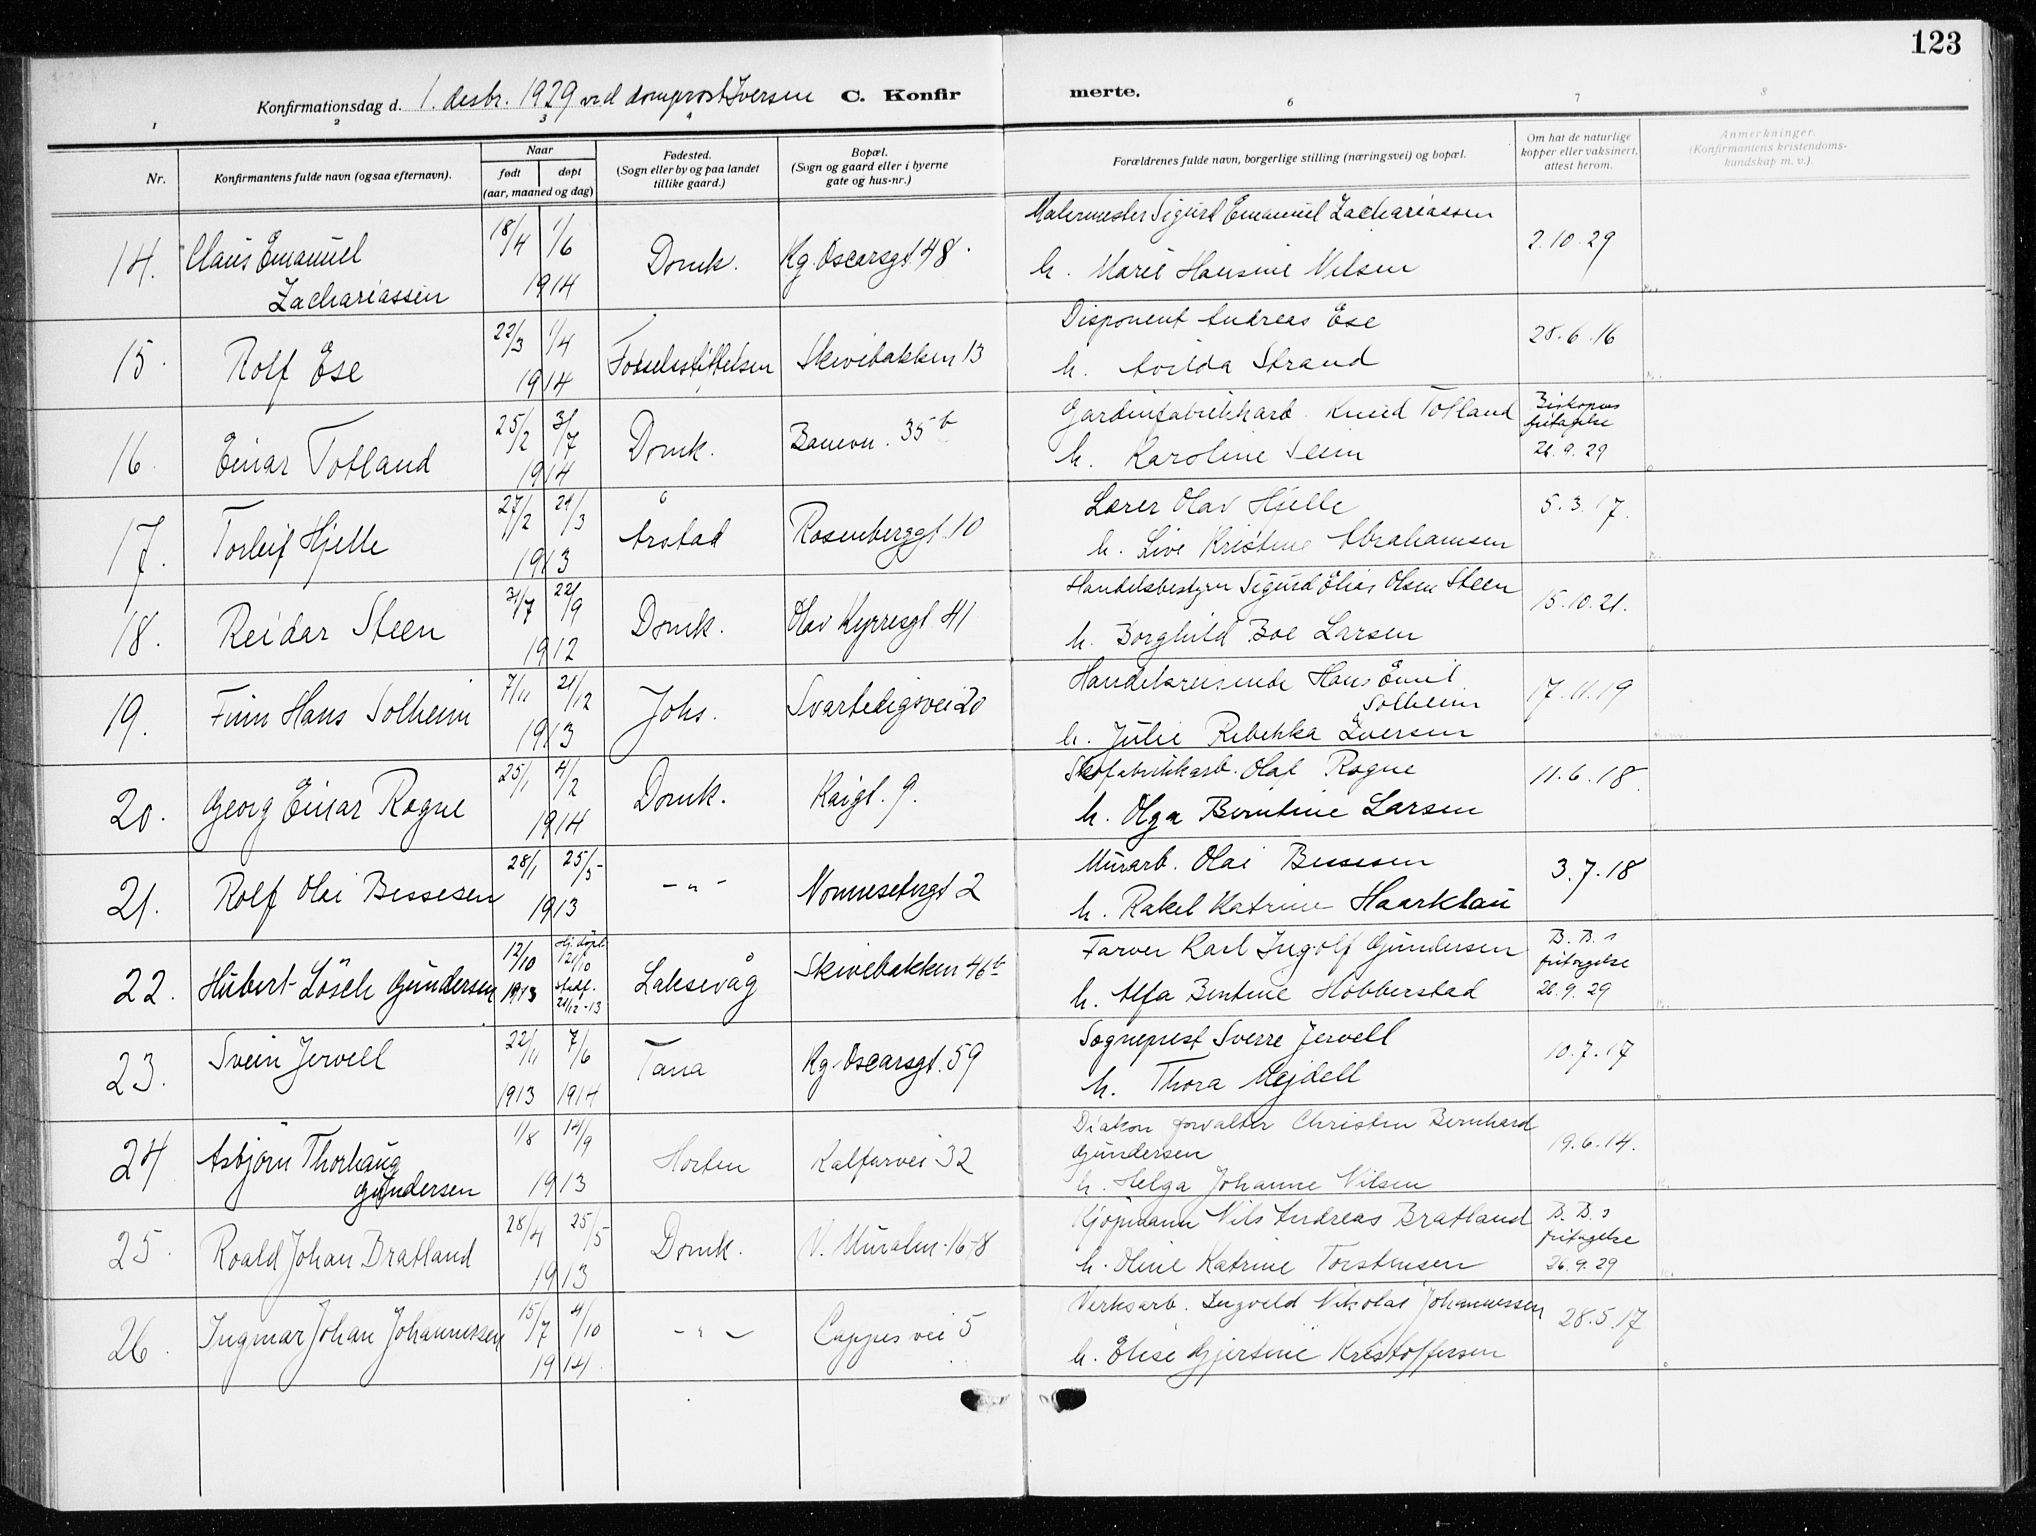 123
Konfirmationsdag d. 1. desbr. 1929 ved domprost Iversen C. Konfirmerte.
1 2 3 4 6 7 8
Nr.
Konfirmantens fulde navn (ogsaa efternavn).
Naar
født døpt
(aar, maaned og dag)
Fødested.
(Sogn eller by og paa landet
tillike gaard.)
Bopæl.
(Sogn og gaard eller i byerne
gate og hus-nr.)
Forældrenes fulde navn, borgerlige stilling (næringsvei) og bopæl.
Om hat de naturlige
kopper eller vaksinert,
attest herom.
Anmerkninger.
(Konfirmantens kristendoms-
kundskap m. v.).
14. Claus Emanuel
Zachariassen
18/4 1/6
1914
Domk.
Kg. Oscarsgt. 48
Malermester Sigurd Emanuel Zachariassen
h. Marie Hansine Nilsen
2.10.29
15. Rolf Ese
22/3 1/4
1914
Fødselsstiftelsen
Skivebakken 13
Disponent Andreas Ese
h. Avilda Strand
28.6.16
16. Einar Totland
25/2 3/7
1914
Domk.
Banevn. 35 b
Gardinfabrikkarb. Knud Totland
h. Karoline Seim
Biskopens
fritagelse
26.9.29
17. Torleif Hjelle
27/2 24/3
1913
Årstad
Rosenberggt. 10
Lærer Olav Hjelle
h. Live Kristine Abrahamsen
5.3.17.
18. Reidar Steen
3/7 22/9
1912
Domk.
Olav Kyrresgt 41
Handelsbestyrer Sigurd Elias Olsen Steen
h. Borghild Boe Larsen
15.10.21.
19. Finn Hans Solheim
7/11 21/12
1913
Johs.
Svartedigsvei 20
Handelsreisende Hans Emil
Solheim
h. Julie Rebekka Iversen
17.11.19
20. Georg Einar Rogne
25/1 4/2
1914
Domk.
Kaigt. 9.
Skofabrikkarb. Olaf Rogne
h. Olga Berntine Larsen
11.6.18.
21. Rolf Olai Bessesen
28/1 25/5
1913
- " -
Nonnesetergt 2
Murarb. Olai Bessesen
h. Rakel Katrine Haarklau
3.7.18
22. Hubert Lösch Gundersen
12/10 Hj. døpt
12/10
1913 stadf.
21/12-13
Laksevåg
Skivebakken 46 b
Farver Karl Ingolf Gundersen
h. Alfa Bentine Hobberstad
B. B.s
fritagelse
26.9.29
23. Svein Jervell
22/11 7/6
1913 1914
Tana
Kg. Oscarsgt. 59
Sogneprest Sverre Jervell
h. Thora Mejdell
10.7.17
24 Asbjörn Thorhaug
Gundersen
1/8 14/9
1913
Horten
Kalfarvei 32
Diakon forvalter Christen Bernhard
Gundersen
h. Helga Johanne Nilsen
19.6.14.
25. Roald Johan Bratland
28/4 25/5
1913
Domk.
V. Muralm. 16-8
Kjøpmann Nils Andreas Bratland
h. Oline Katrine Torstensen
B. B.s
fritagelse
26.9.29
26. Ingmar Johan Johannessen
15/7 4/10
1914.
- " -
Cappes vei 5
Verksarb. Ingvald Nikolai Johannessen
h. Elise Gjertine Kristoffersen
28.5.17